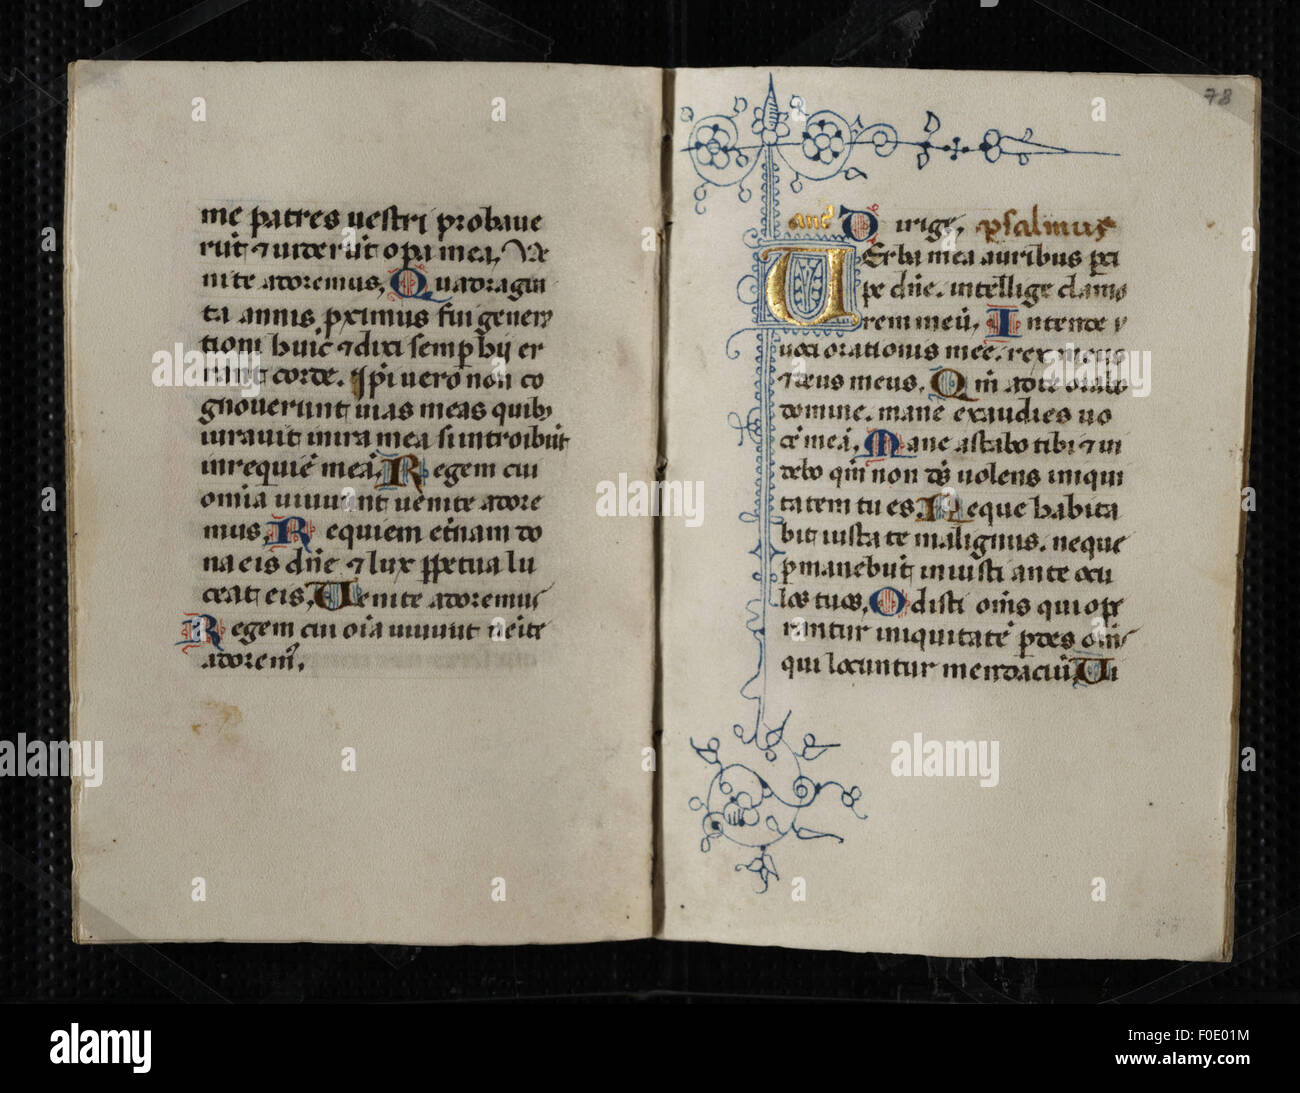 me patres vestri probave
rūt ⁊ viderūt opa mea. Ve
nite adoremus. Quadragin
ta annis pximus fui genera
tioni huic ⁊ dixi semp hij er
rant corde. Ipi vero non co
gnoverunt vias meas quib
iuravit in ira mea si introibūt
in requiē meā. Regem cui
omia vivunt venite adore
mus. Requiem etnam do
na eis dn̄e ⁊ lux ppetua lu
ceat eis. Venite adoremus
Regem cui oīa vivunt veīte
adorem⁹.
78
anā Dirige. psalmus
Verba mea auribus pci
pe dn̄e. intellige clamo
rem meū. Intende v
voci orationis mee. rex meus
⁊ deus meus. Qm̄ ad te orabo
domine. mane exaudies vo
cē meā. Mane astabo tibi ⁊ vi
debo qm̄ non ds̄ volens iniqui
tatem tu es. Neque habita
bit iuxta te malignus. neque
pmanebūt iniusti ante ocu
los tuos. Odisti om̄s qui ope
rantur iniquitatē pdes om̄s
qui locuntur mendaciū. Vi
alamy
alamy
alamy
alamy
alamy
a
a
a
a
a
a
a
a
a
alamy
Image ID: F0E01M
www.alamy.com